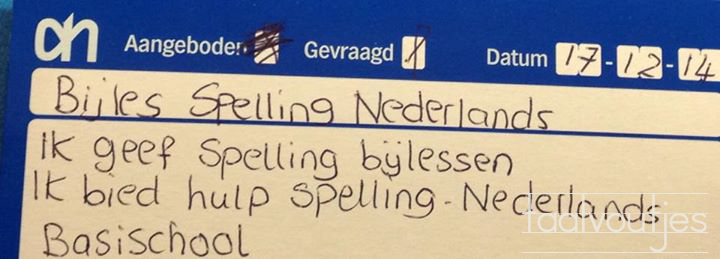 ah Aangeboden Gevraagd Datum 17-12-14
Bijles Spelling Nederlands
Ik geef Spelling bijlessen
Ik bied hulp spelling-Nederlands
taalvoutjes
Basischool